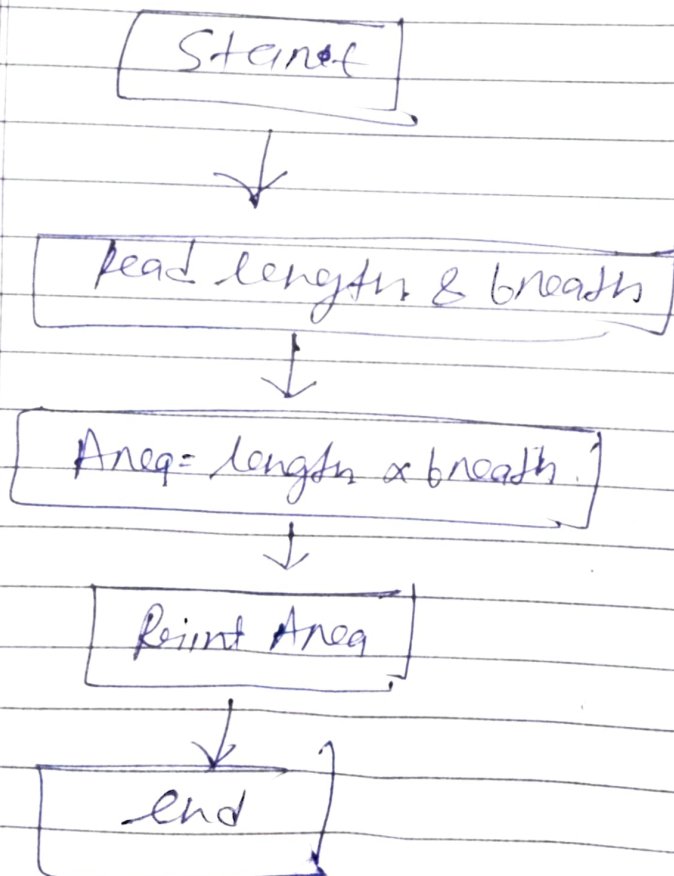 Start
Read length & breath
Area = length × breath.
Print Area
end